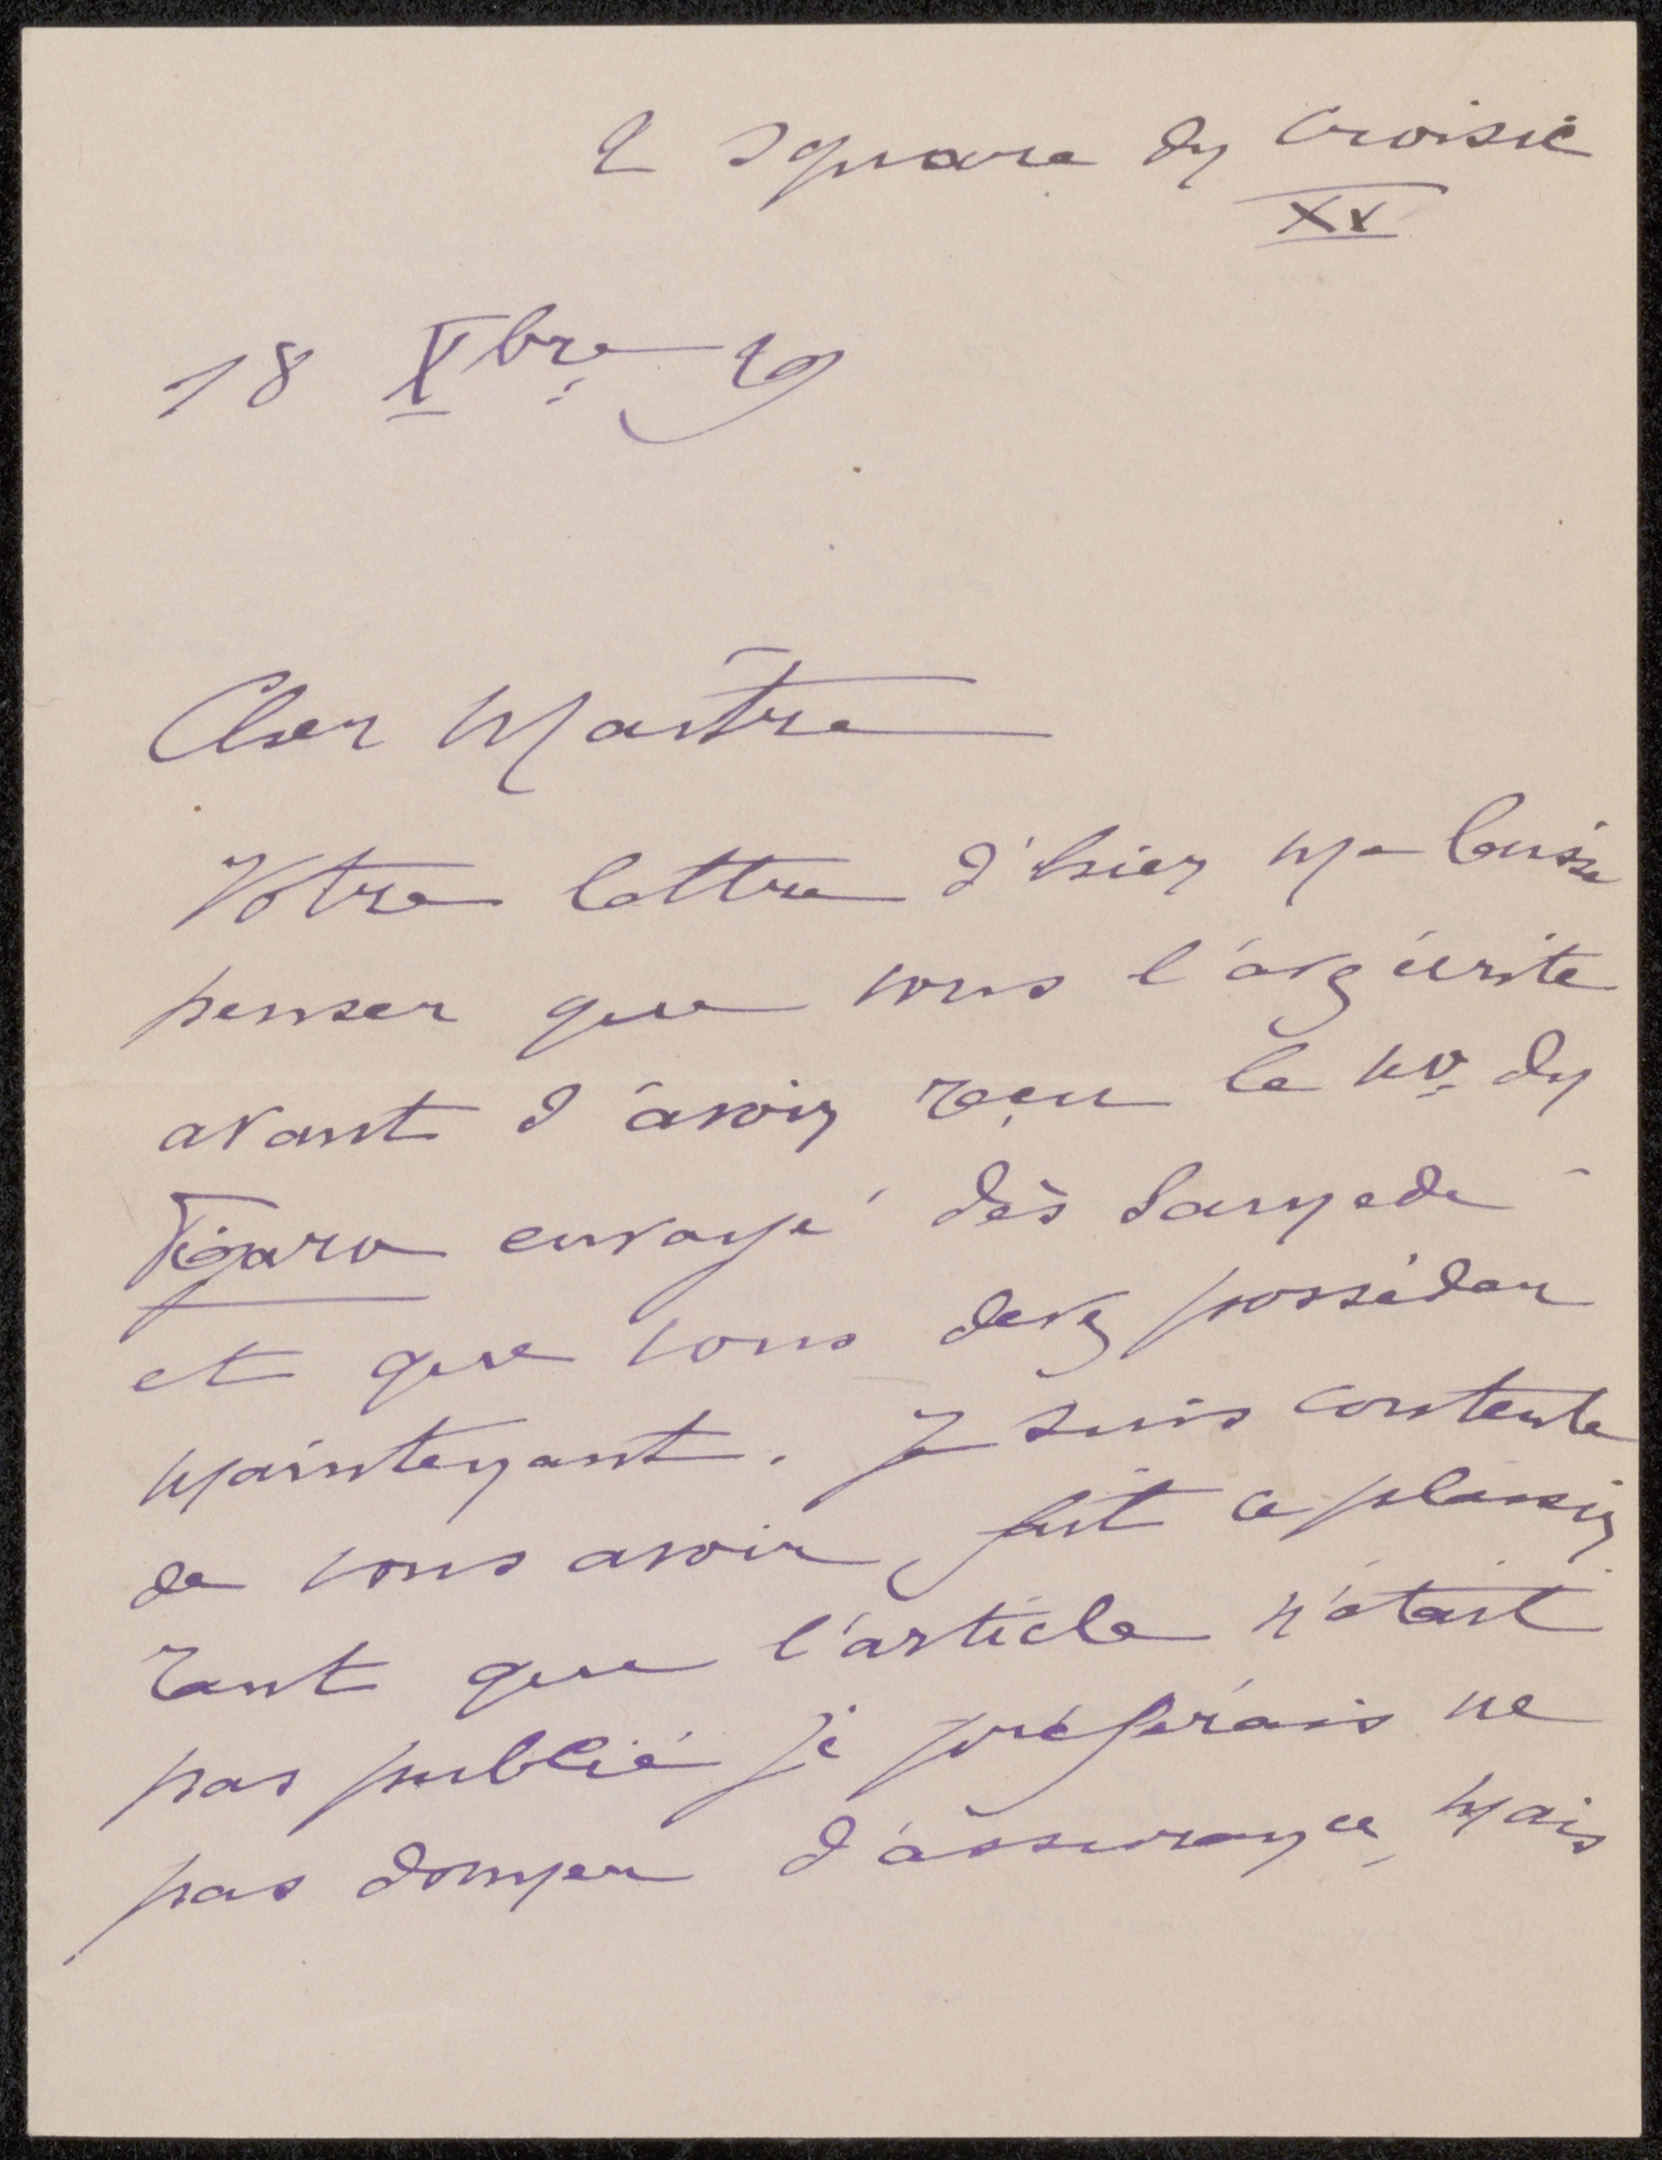 2 square du Croisic
XV
18 Xbre 29
Cher Maître
Votre lettre d'hier me laisse
penser que vous l'avez écrite
avant d'avoir reçu le no du
Figaro envoyé dès Samedi
et que vous devez posséder
maintenant. Je suis contente
de vous avoir fait ce plaisir
Tant que l'article n'était
pas publié je préférais ne
pas donner d'assurance, mais